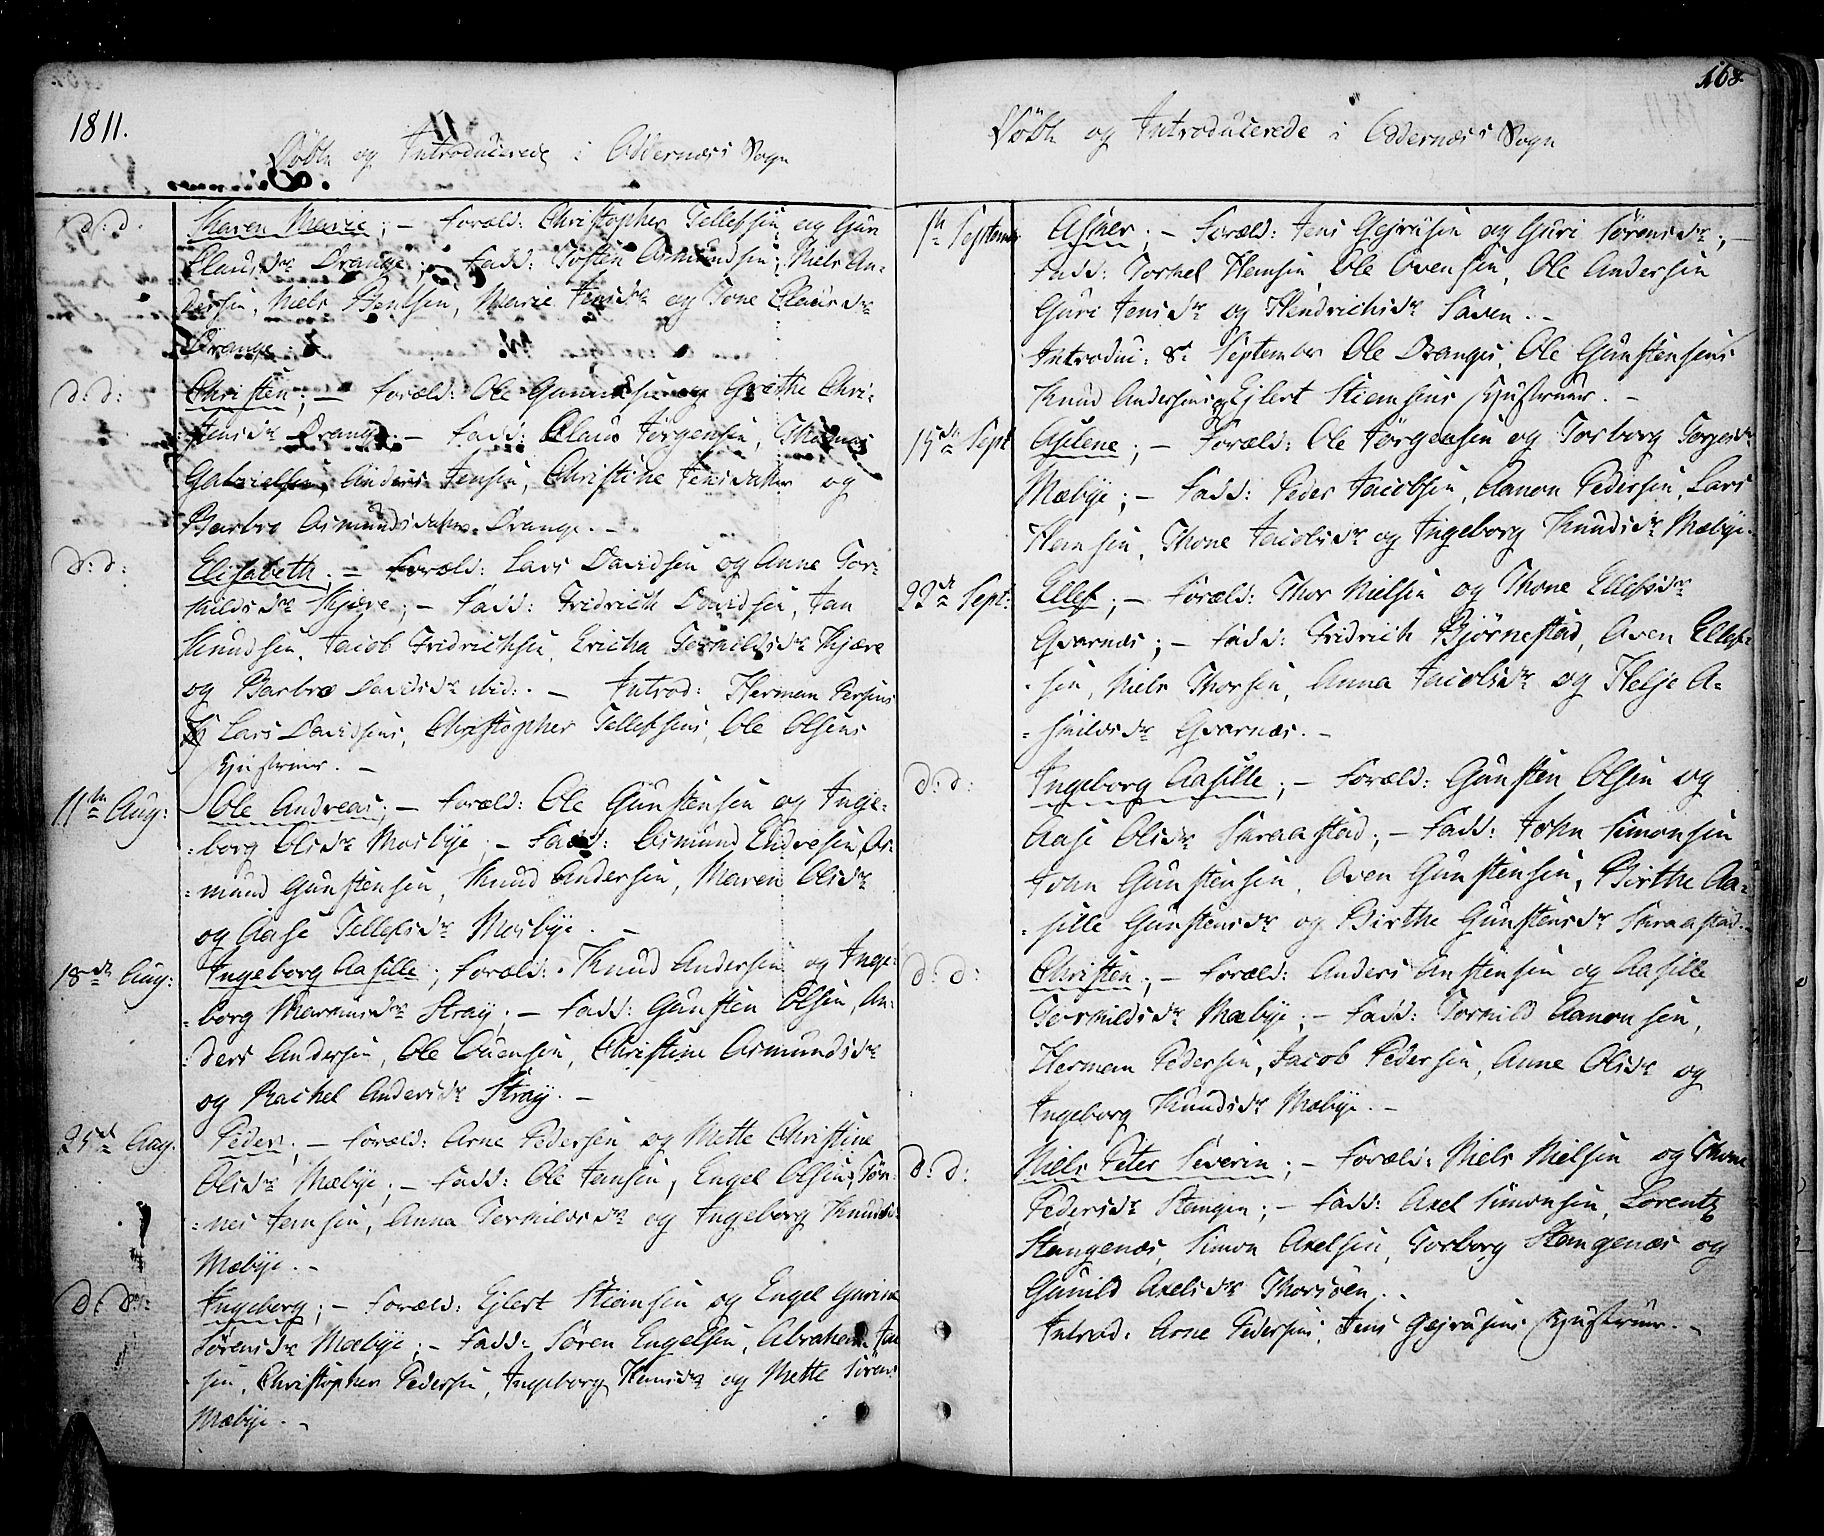 1811.
Döbte og Introducerede i Oddernæss Sogn
d: d. Maren Marie; – Foræld: Christopher Tellefsen og Gun
Clausdr Drange; – Fadd: Tosten Osmundsen, Niels An-
dersen, Niels Bentsen, Marie Jensdr og Tone Clausdr
Drange.
d: d: Christen; – Foræld: Ole Gunnersen og Grethe Chri-
stensdr Drange. – Fadd: Claus Jörgensen, Thomas
Gabrielsen, Anders Jensen, Christine Jensdatter og
Barbro Osmundsdatter Drange. –
d: d: Elisabeth; – Foræld: Lars Davidsen og Anne Tor-
kildsdr Kjære; – Fadd: Fridrich Davidsen, Jan
Knudsen, Jacob Fridrichsen, Ericha Torkildsdr Kjære
og Barbro Davidsdr ibid: – Introd: Herman Persens
Lars Davidsens, Christopher Tellefsens, Ole Olsens
Hustruer. –
11te Aug: Ole Andreas; – Foræld: Ole Gunstensen og Inge-
borg Olsdr Mosbye; – Fadd: Osmund Endresen, Os-
mund Gunstensen, Knud Andersen, Maren Olsdr
og Aase Tellefsdr Mosbye. –
18de Aug: Ingeborg Aasille; Foræld: Knud Andersen og Inge-
borg Marcusdr Stray; – Fadd: Gunsten Olsen, An-
ders Andersen, Ole Ouensen, Christine Osmundsdr
og Rachel Andersdr Stray. –
25de Aug. Peder; – Foræld: Arne Pedersen og Mette Christine
Olsdr Mæbye; – Fadd: Ole Jensen, Engel Olsen, Tön-
nes Jensen, Anna Torkildsdr og Ingeborg Knudsd.
Mæbye. –
d: d: Ingeborg; – Foræld: Ejlert Stiansen og Engel
Sörensdr Mæbye; – Fadd: Sören Engelsen, Abraham Jan
sen, Christopher Pedersen, Ingeborg Hansdr og Mette Sörens
Mæbye. –
168.
Döbte og Introducerede i Oddernæss Sogn
1te September Asser; – Foræld: Jens Gejrusen og Guri Sörensdr; –
Fadd: Torkel Hansen, Ole Ovensen, Ole Andersen
Guri Jensdr og Hendrichsdr Saven. –
Introduc: 8de September Ole Dranges, Ole Gunstensens
Knud Andersens og Ejlert Stiansens Hustruer. –
15de Sept Aslene; – Foræld: Ole Jörgensen og Torborg Torjesdr
Mæbye; – Fadd: Peder Jacobsen, Aanon Pedersen, Lars
Hansen, Thone Jacobsdr og Ingeborg Knudsdr Mæbye.
22de Sept: Ellef; – Foræld: Thor Nielsen og Thone Ellefsdr
Qvarnæs; – Fadd: Fridrich Björnestad, Oven Ellef-
sen, Niels Thorsen, Anna Jacobsdr og Helje A-
skildsdr Qvarnæs. –
d: d: Ingeborg Aasille; – Foræld: Gunsten Olsen og
Aase Olsdr Skraastad; – Fadd: John Simonsen
John Gunstensen, Oven Gunstensen, Birthe Aa-
sille Gunstensdr og Birthe Gunstensdr Skraastad. –
d: d: Christen; – Foræld: Anders Anstensen og Aasille
Torkildsdr Mæbye; – Fadd: Torkild Aanonsen,
Herman Pedersen, Jacob Pedersen, Anne Olsdr og
Ingeborg Knudsdr Mæbye. –
d: d: Niels Peter Severin; – Foræld: Niels Nielsen og Thone
Pedersdr Stangen; – Fadd: Axel Simonsen, Lorentz
Stangenæs, Simon Axelsen, Torborg Stangenæs og
Gunild Axelsdr Thorsöen. –
Introd: Arne Pedersens, Jens Gejrusens Hustruer. –